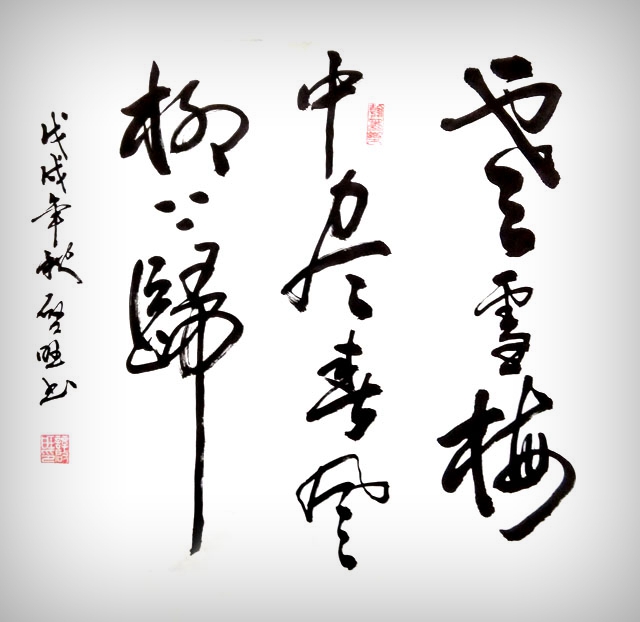 寒雪梅
中尽春风
柳上歸
戊戌年秋启旺书